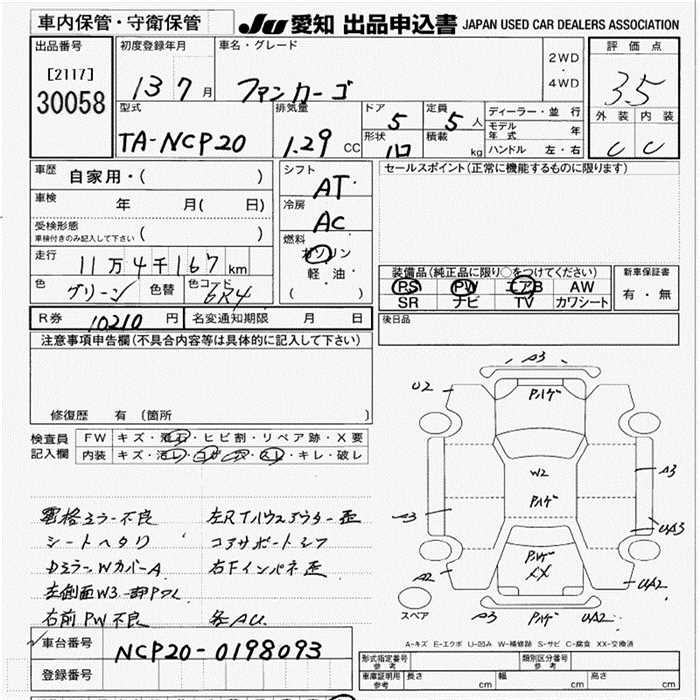 車内保管・守衛保管
JU 愛知 出品申込書 JAPAN USED CAR DEALERS ASSOCIATION
出品番号
[2117]
30058
初度登録年月
13 7 月
車名・グレード
ファンカーゴ
2WD
・
4WD
評価点
3.5
外装 内装
C C
型式
TA-NCP20
排気量
1.29 CC
ドア 5
定員 5 人
形状
積載 kg
ディーラー・並行
モデル年式 年
ハンドル 左・右
車歴 自家用・( )
車検 年 月( 日)
受検形態
車検付きのみ記入して下さい ( )
走行
11万4千167 km
色 グリーン
色替
色コード 6R4
シフト
AT
冷房
AC
燃料
ガソリン
軽油・
( )
セールスポイント(正常に機能するものに限ります)
装備品(純正品に限り○をつけてください)
PS PW エアB AW
SR ナビ TV カワシート
新車保証書
有・無
R券 10210 円
名変通知期限 月 日
後日品
注意事項申告欄(不具合内容等は具体的に記入して下さい)
修復歴 有(箇所 )
検査員
記入欄
FW キズ・飛石・ヒビ割・リペア跡・X要
内装 キズ・汚レ・コゲ・穴・スレ・キレ・破レ
電格ミラー不良
シートヘタリ
DミラーWカバーA
右前PW不良
コアサポートシフ
右Fインパネ歪
各AU
A3
U2
Pハゲ
W2
Pハゲ
A3
A3
UA3
Pハゲ
XX
A2
UA2
スペア
A3
Pハゲ
UA2
A-キズ E-エクボ U-凹み W-補修跡 S-サビ C-腐食 XX-交換済
車台番号
NCP20-0198093
登録番号
形式指定番号
参考
類別区分番号
参考
車庫証明用
参考
長さ cm
幅 cm
高さ cm